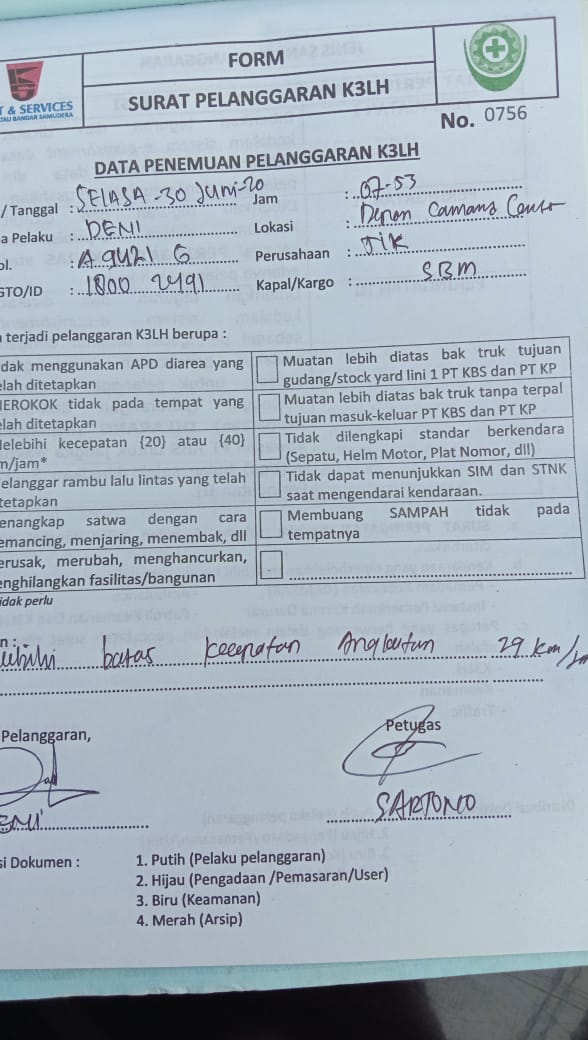 T & SERVICES
FORM
SURAT PELANGGARAN K3LH
No. 0756
DATA PENEMUAN PELANGGARAN K3LH
/ Tanggal : SELASA - 30 Juni-20 Jam : 07-53
a Pelaku : DENI Lokasi : Depan
ol. : A 9421 G Perusahaan :
STO/ID : 1800 2491 Kapal/Kargo : SBM
terjadi pelanggaran K3LH berupa :
dak menggunakan APD diarea yang
elah ditetapkan
Muatan lebih diatas bak truk tujuan
gudang/stock yard lini 1 PT KBS dan PT KP
MEROKOK tidak pada tempat yang
elah ditetapkan
Muatan lebih diatas bak truk tanpa terpal
tujuan masuk-keluar PT KBS dan PT KP
elebihi kecepatan {20} atau {40}
m/jam*
Tidak dilengkapi standar berkendara
(Sepatu, Helm Motor, Plat Nomor, dll)
elanggar rambu lalu lintas yang telah
tetapkan
Tidak dapat menunjukkan SIM dan STNK
saat mengendarai kendaraan.
enangkap satwa dengan cara
emancing, menjaring, menembak, dll
Membuang SAMPAH tidak pada
tempatnya
erusak, merubah, menghancurkan,
enghilangkan fasilitas/bangunan
idak perlu
n :
batas 29 km/
Pelanggaran,
Petugas
ENI
SARTONO
si Dokumen :
1. Putih (Pelaku pelanggaran)
2. Hijau (Pengadaan /Pemasaran/User)
3. Biru (Keamanan)
4. Merah (Arsip)